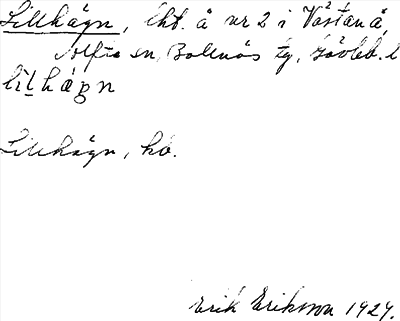 Lillhägn, lht. å nr 2 i Västanå,
Alfta sn, Bollnäs tg, Gävleb. l
Lillhägn, hö.
Erik Eriksson 1929.